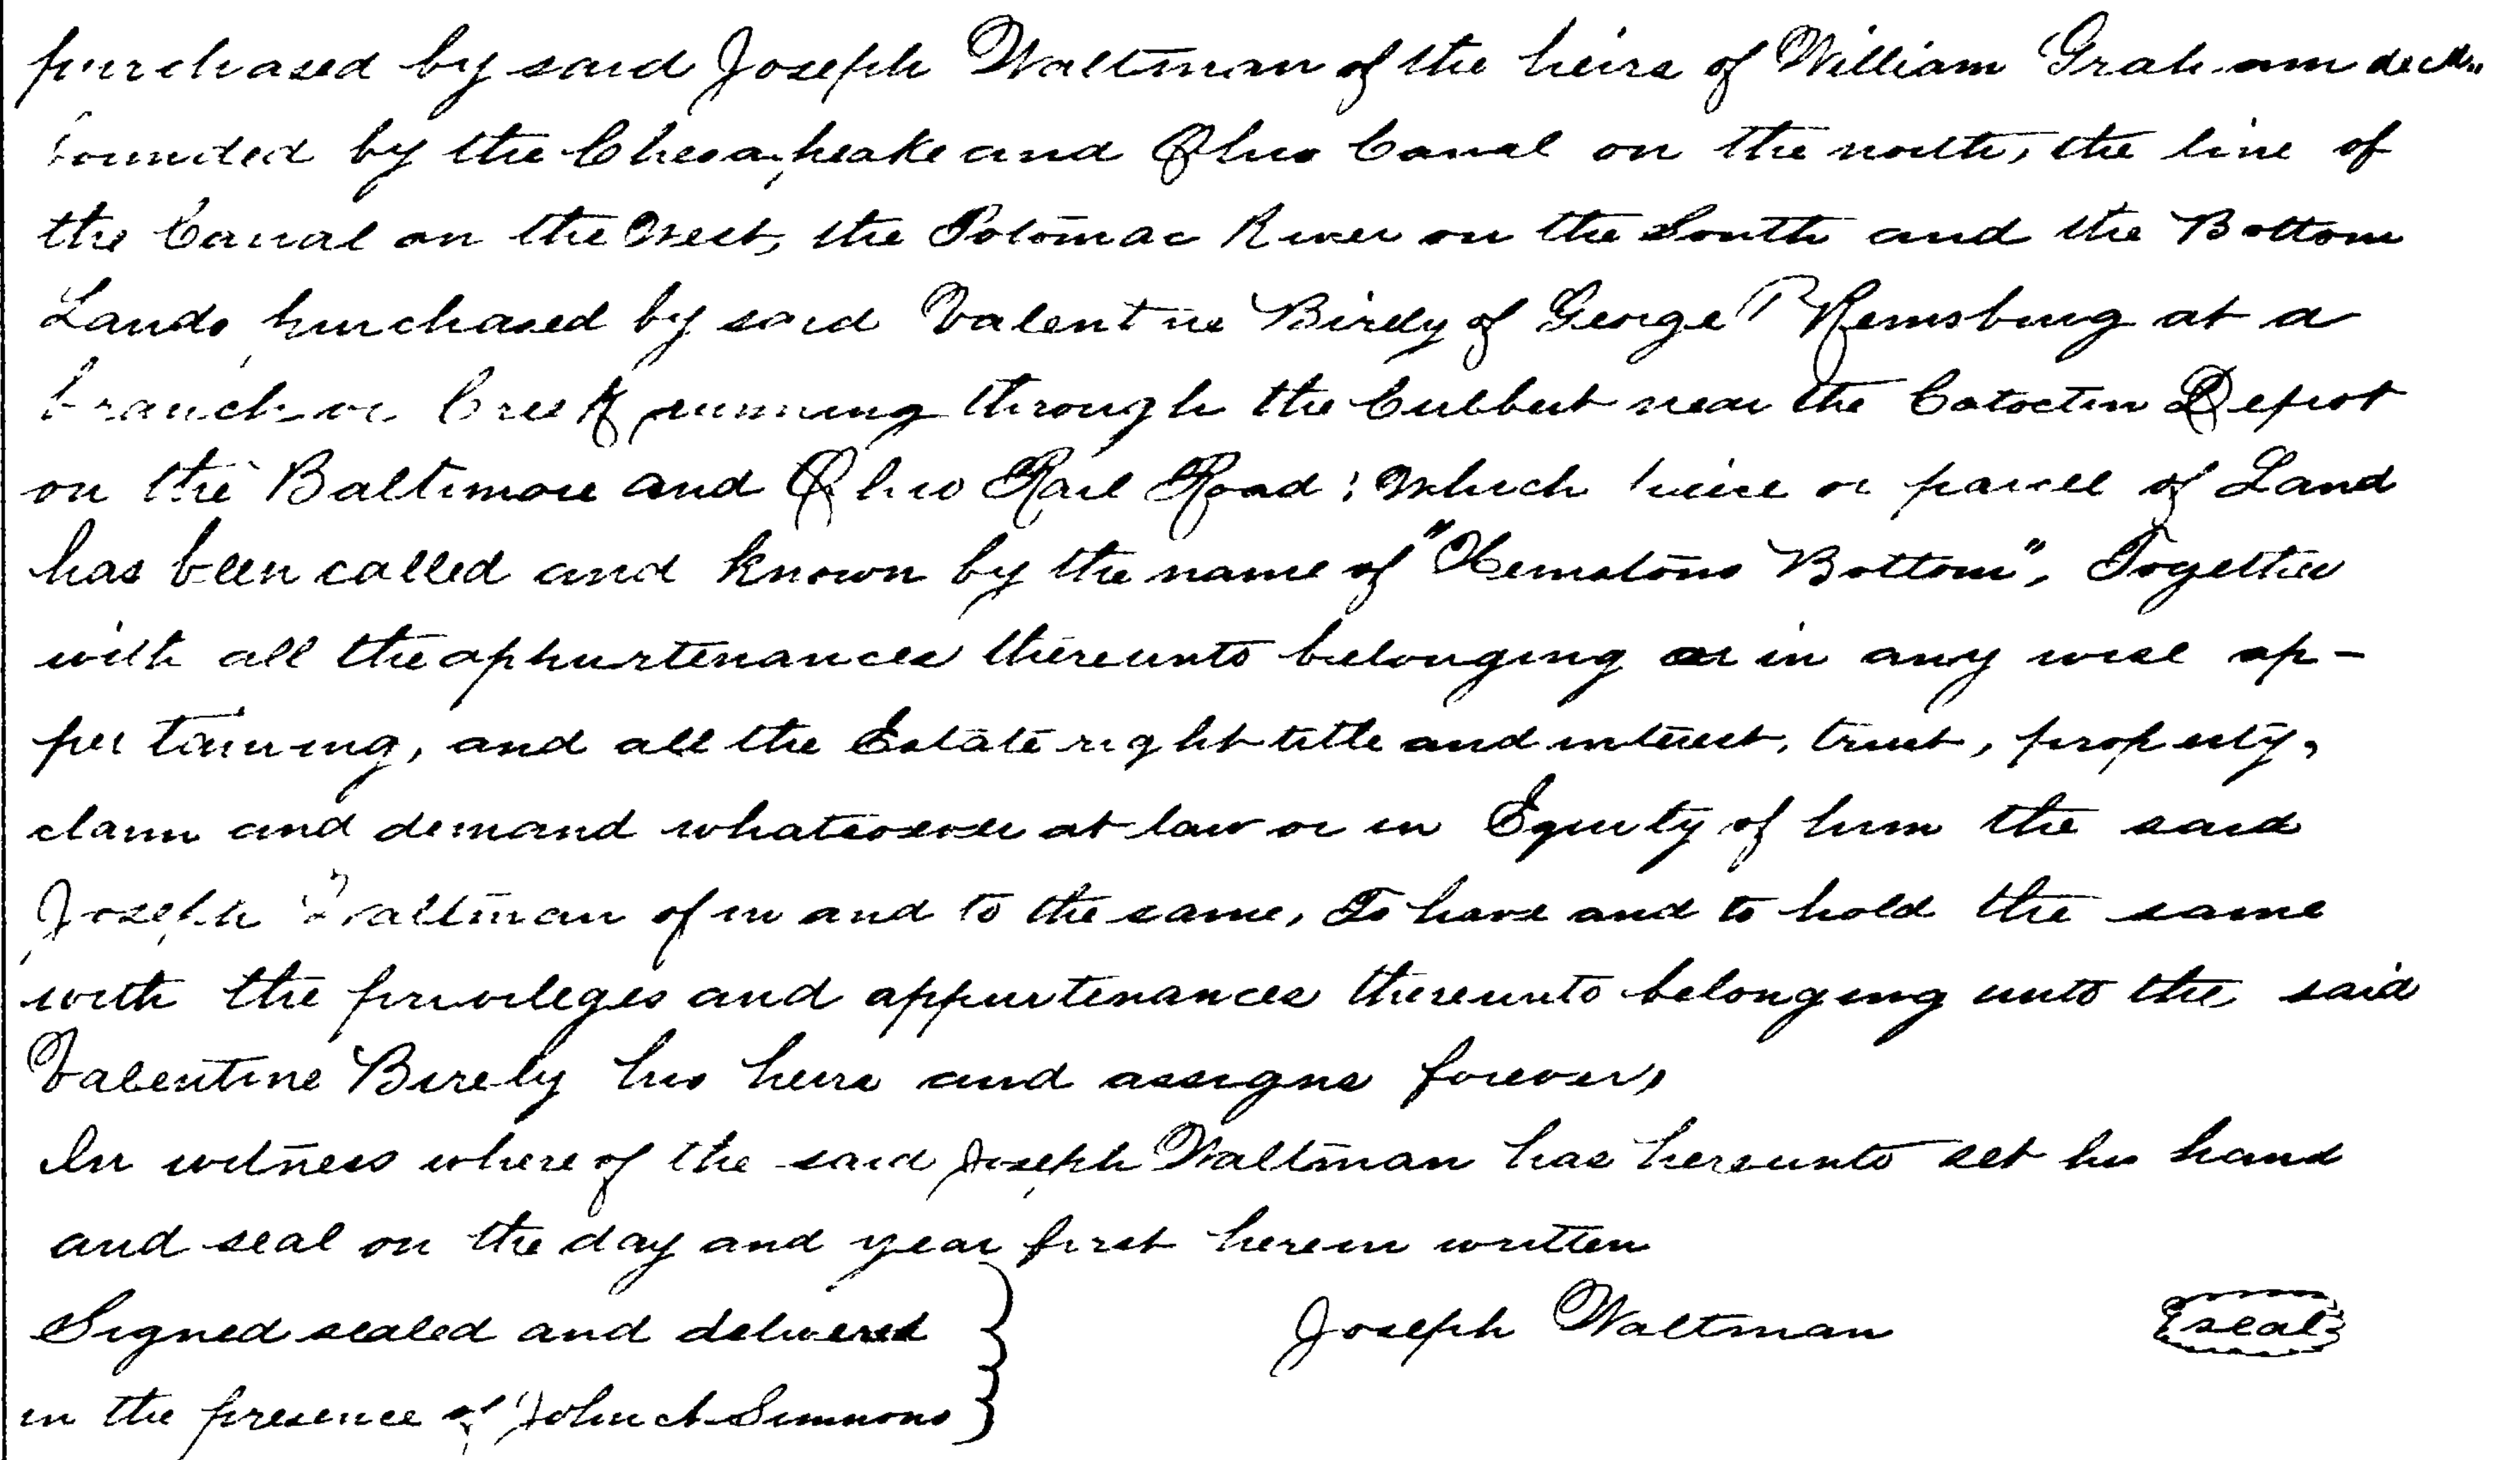 purchased by said Joseph Waltman of the heirs of William Graham
bounded by the Chesapeake and Ohio Canal on the north, the line of
the Canal on the West, the Potomac River on the South and the Bottom
Lands purchased by said Valentine Birely of George P Remsburg at a
branch or Creek running through the Culbert near the Catoctin Depot
on the Baltimore and Ohio Rail Road; Which piece or parcel of Land
has been called and known by the name of "Hemstons Bottom", Together
with all the appurtenances thereunto belonging or in any wise ap-
pertaining, and all the Estate right title and interest, trust, property,
claim and demand whatsoever at law or in Equity of him the said
Joseph Waltman of in and to the same, To have and to hold the same
with the privileges and appurtenances thereunto belonging unto the said
Valentine Birely his heirs and assigns forever,
In witness where of the said Joseph Waltman has hereunto set his hand
and seal on the day and year first herein written
Signed sealed and delivered } Joseph Waltman seal
in the presence of John A Simmons